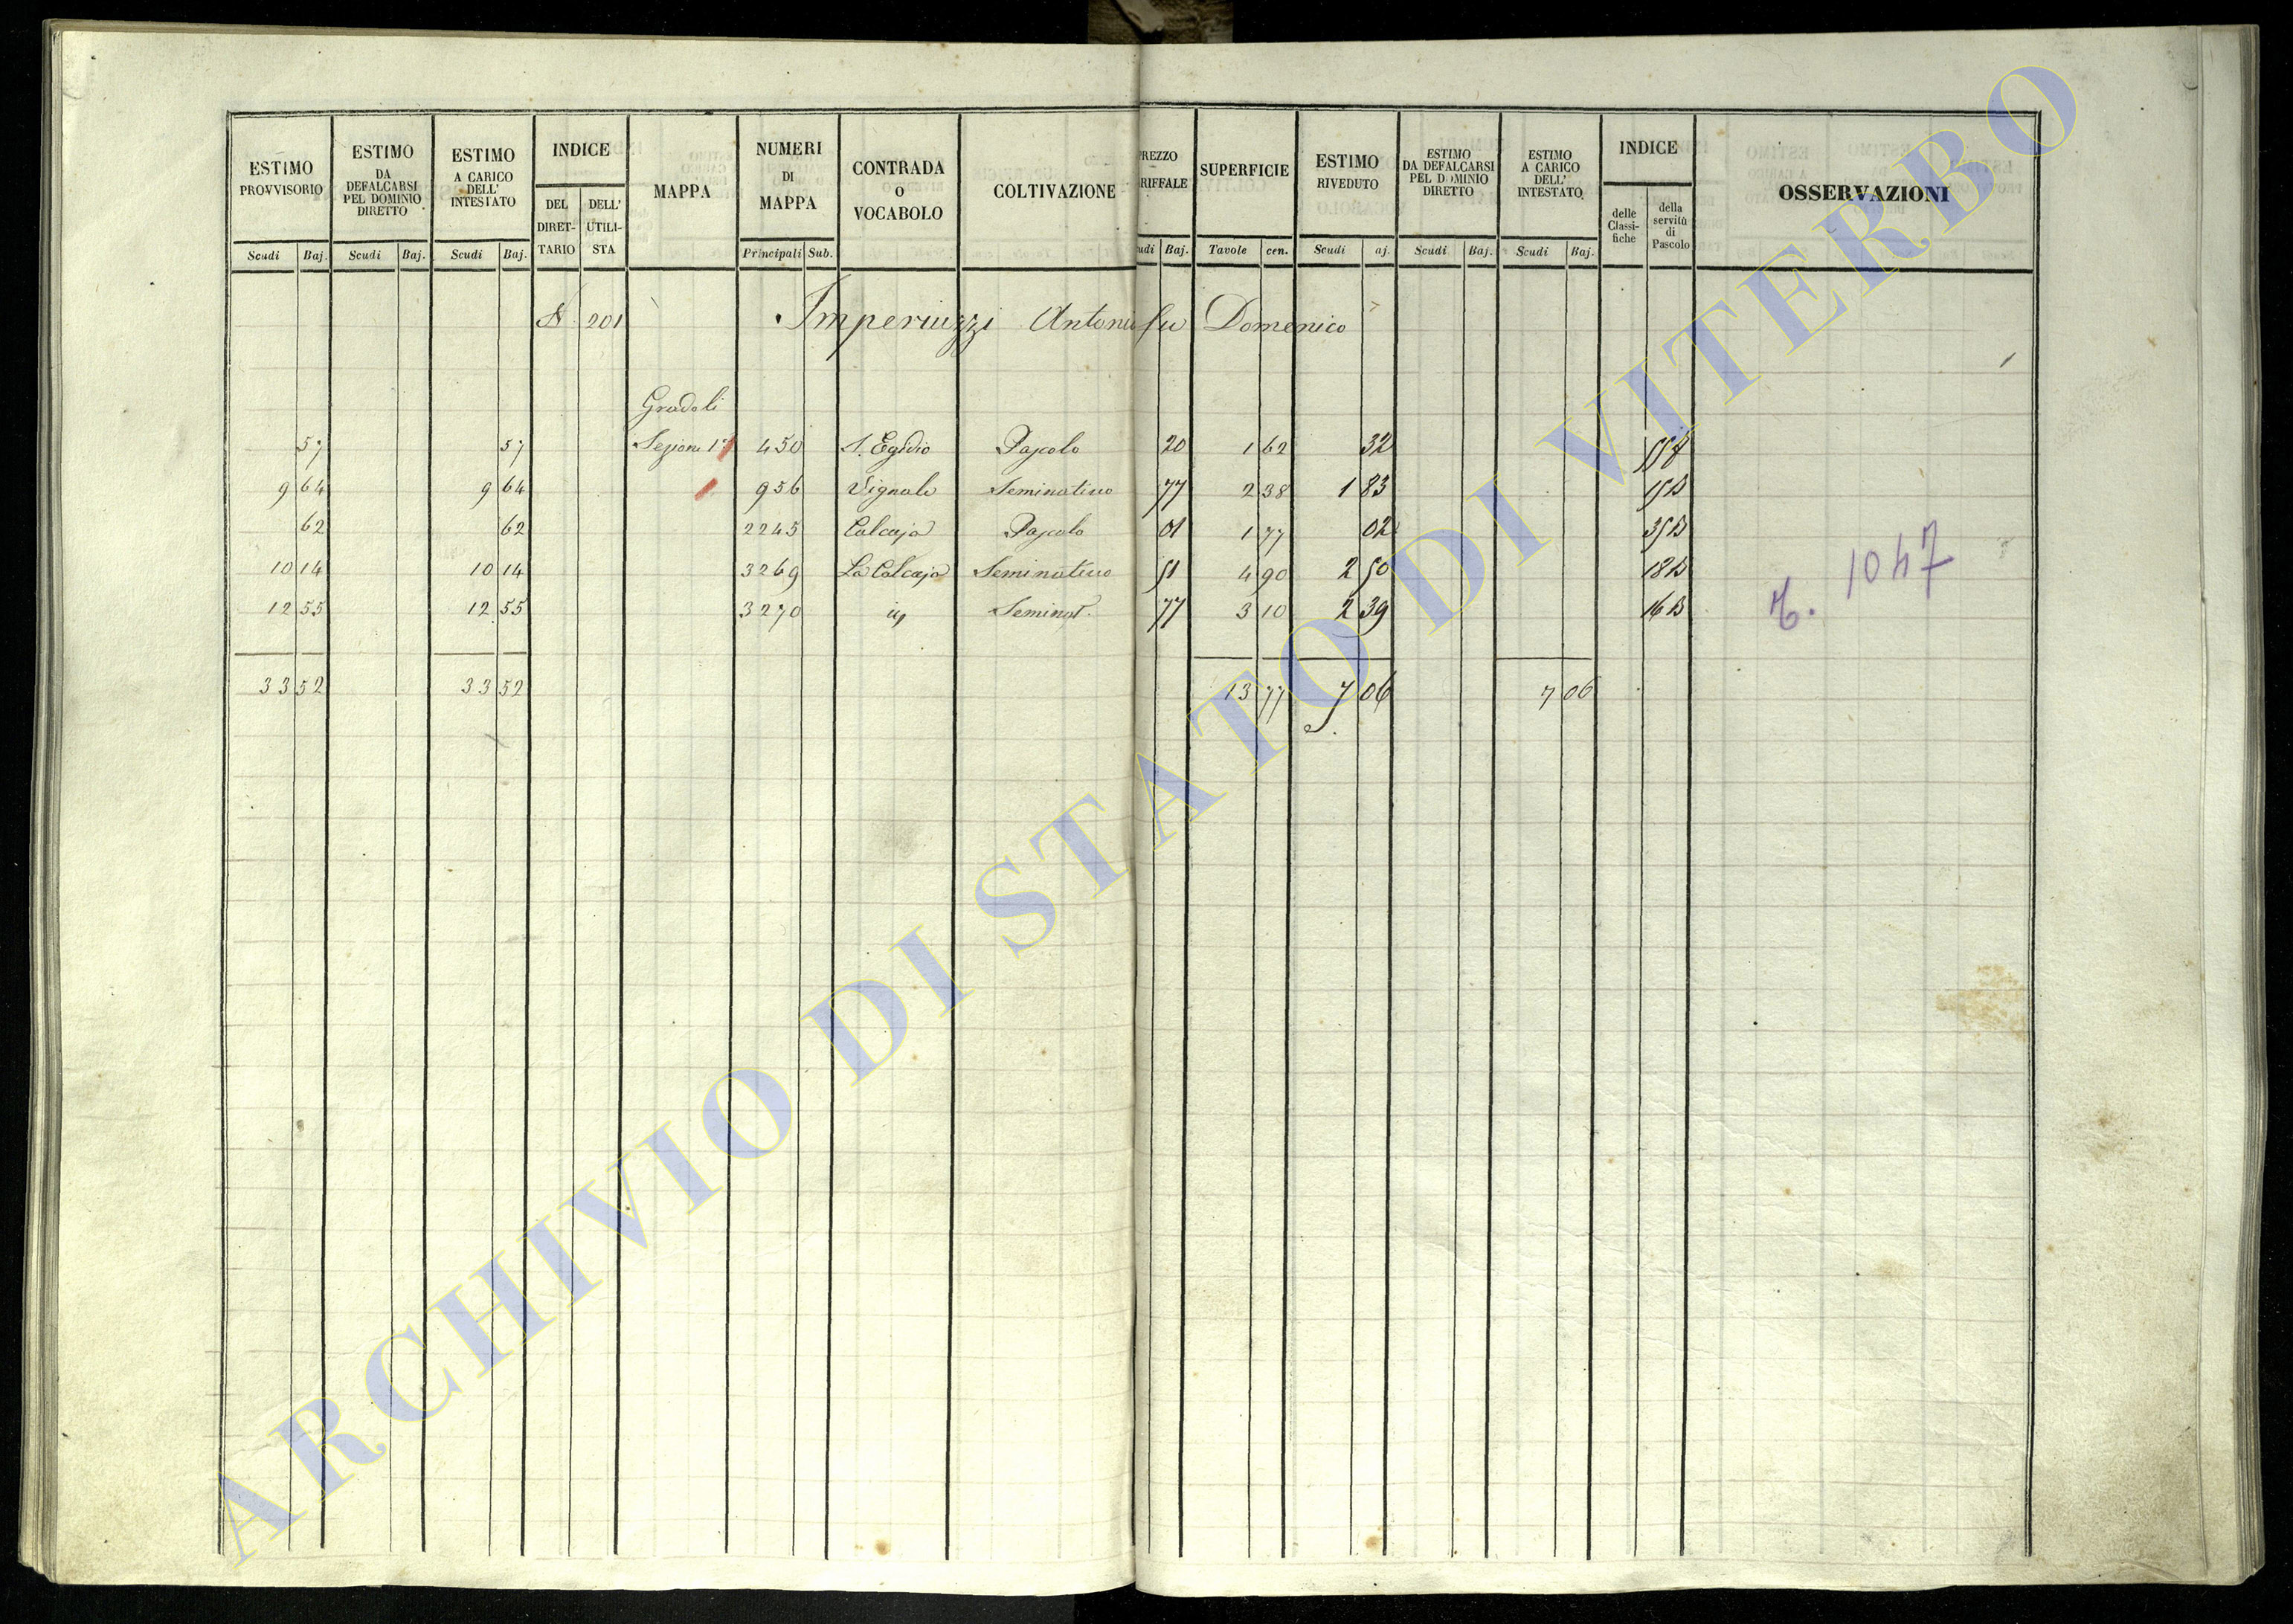 ESTIMO PROVVISORIO
ESTIMO DA DEFALCARSI PEL DOMINIO DIRETTO
ESTIMO A CARICO DELL' INTESTATO
INDICE
DEL DIRETTARIO
DELL' UTILISTA
MAPPA
NUMERI DI MAPPA
CONTRADA O VOCABOLO
COLTIVAZIONE
PREZZO RIFFALE
SUPERFICIE
ESTIMO RIVEDUTO
ESTIMO DA DEFALCARSI PEL DOMINIO DIRETTO
ESTIMO A CARICO DELL' INTESTATO
INDICE
delle Classifiche
della servitù di Pascolo
OSSERVAZIONI
Scudi Baj. Scudi Baj. Scudi Baj. Principali Sub. udi Baj. Tavole cen. Scudi aj. Scudi Baj. Scudi Baj.
N 201 Imperiuzzi Antonio fu Domenico
Gradoli
57 57 Sezione 1ª 450 S. Egidio Pascolo 20 1 62 32
9 64 9 64 956 Vignale Seminativo 77 2 38 1 83 15 B
62 62 2245 Calcaja Pascolo 01 1 77 02 35 B
10 14 10 14 3269 La Calcaja Seminativo 51 4 90 2 50 18 B
12 55 12 55 3270 Seminat. 77 3 10 2 39 16 B
33 52 33 52 13 77 7 06 7 06
1047
ARCHIVIO DI STATO DI VITERBO